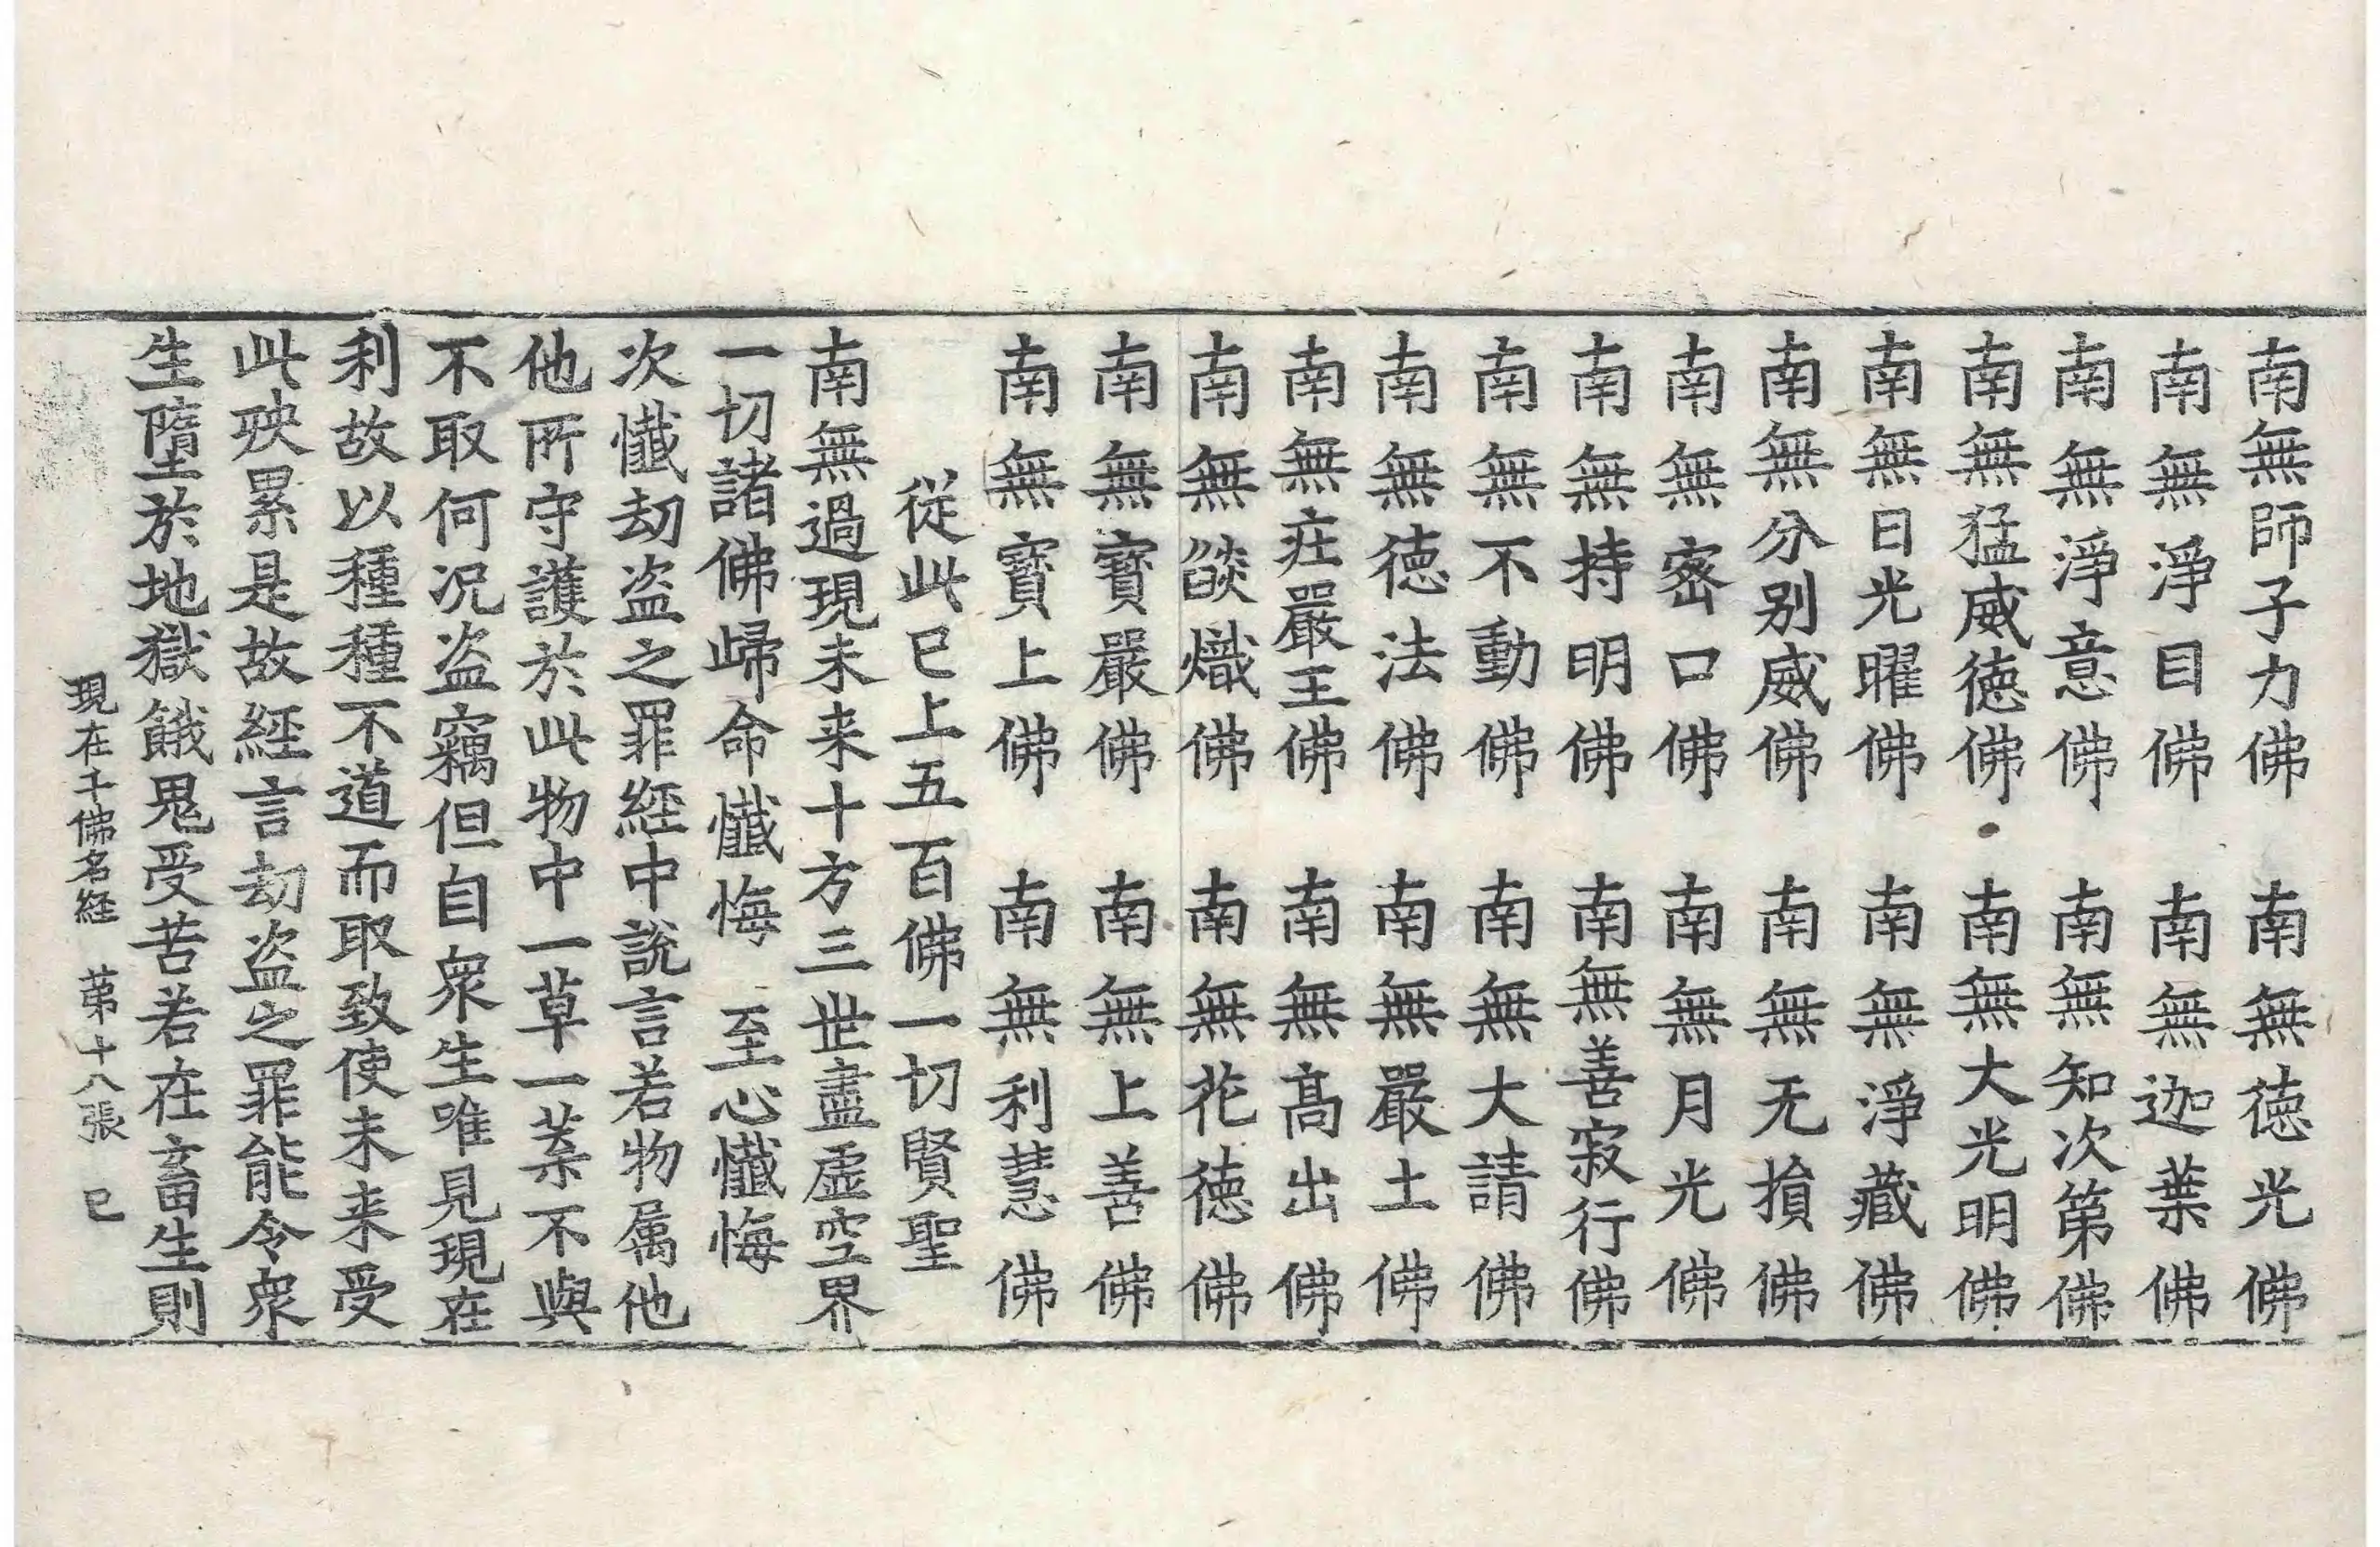 南無師子力佛　南無德光佛
南無淨目佛　南無迦葉佛
南無淨意佛　南無知次第佛
南無猛威德佛　南無大光明佛
南無日光曜佛　南無淨藏佛
南無分别威佛　南無无損佛
南無密口佛　南無月光佛
南無持明佛　南無善寂行佛
南無不動佛　南無大請佛
南無德法佛　南無嚴土佛
南無莊嚴王佛　南無髙出佛
南無燄熾佛　南無花德佛
南無寶嚴佛　南無上善佛
南無寶上佛　南無利慧佛
從此已上五百佛一切賢聖
南無過現未来十方三世盡虛空界
一切諸佛歸命懺悔　至心懺悔
次懺劫盗之罪經中說言若物属他
他所守護於此物中一草一葉不與
不取何况盗竊但自衆生唯見現在
利故以種種不道而取致使未来受
此殃累是故經言劫盗之罪能令衆
生墮於地獄餓鬼受苦若在畜生則
現在千佛名経　第十八張　已